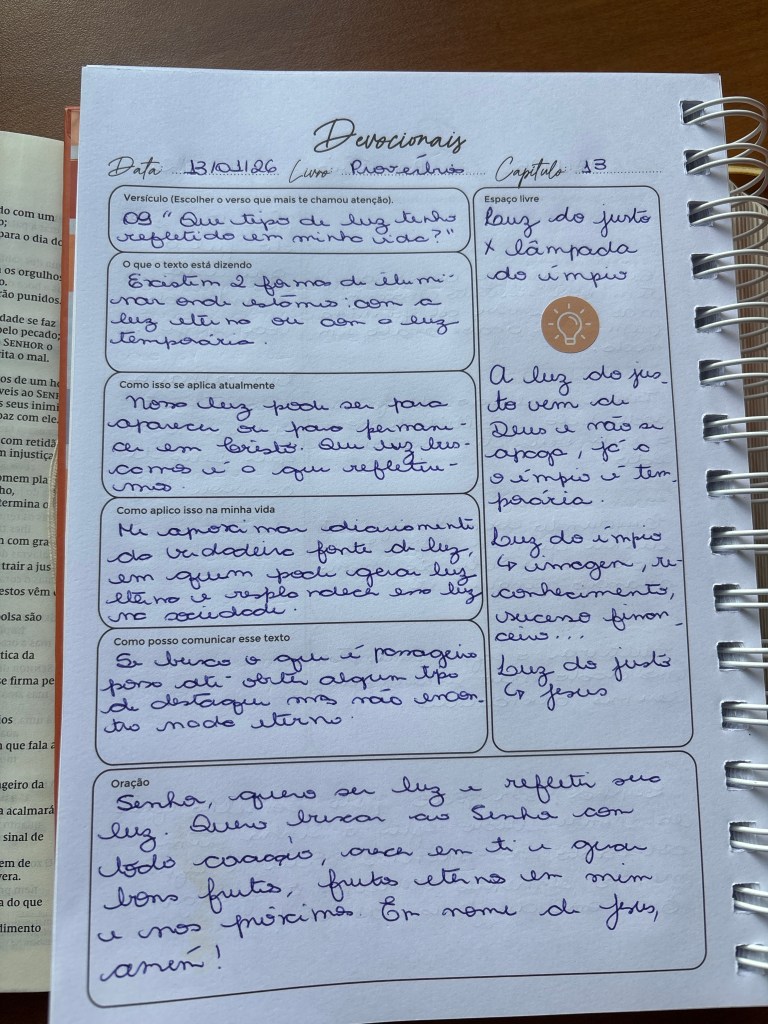 do com um
o;
para o dia do
os orgulhos
o.
rão punidos.
dade se faz
pelo pecado;
SENHOR o
ita o mal.
os de um ho
veis ao SENH
s seus inimi
paz com ele.
com retidã
n injustiça
omem pla
ho,
termina o
n com gra
trair a jus
estos vêm d
olsa são
tica da
se firma pe
ios
n que fala a
ageiro da
a acalmará
sinal de
em de
vera.
a do que
dimento
Devocionais
Data 13/01/26 Livro Provérbios Capítulo 13
Versículo (Escolher o verso que mais te chamou atenção).
09 "Que tipo de luz tenho
refletido em minha vida?"
O que o texto está dizendo
Existem 2 formas de ilumi-
nar onde estamos: com a
luz eterna ou com a luz
temporária.
Como isso se aplica atualmente
Nossa luz pode ser para
aparecer ou para permane-
cer em Cristo. Que luz bus-
camos é o que refletire-
mos.
Como aplico isso na minha vida
Me aproximar diariamente
da verdadeira fonte de luz,
em quem pode gerar luz
eterna e resplandecer essa luz
na sociedade.
Como posso comunicar esse texto
Se busco o que é passageiro
posso até obter algum tipo
de destaque mas não encon-
tro nada eterno.
Espaço livre
Luz do justo
x lâmpada
do ímpio
A luz do jus-
to vem de
Deus e não se
apaga, já a
o ímpio é tem-
porária.
Luz do ímpio
↳ imagem, re-
conhecimento,
sucesso finan-
ceiro...
Luz do justo
↳ Jesus
Oração
Senhor, quero ser luz e refletir sua
luz. Quero buscar ao Senhor com
todo coração, crescer em ti e gerar
bons frutos, frutos eternos em mim
e nos próximos. Em nome de Jesus,
amém!